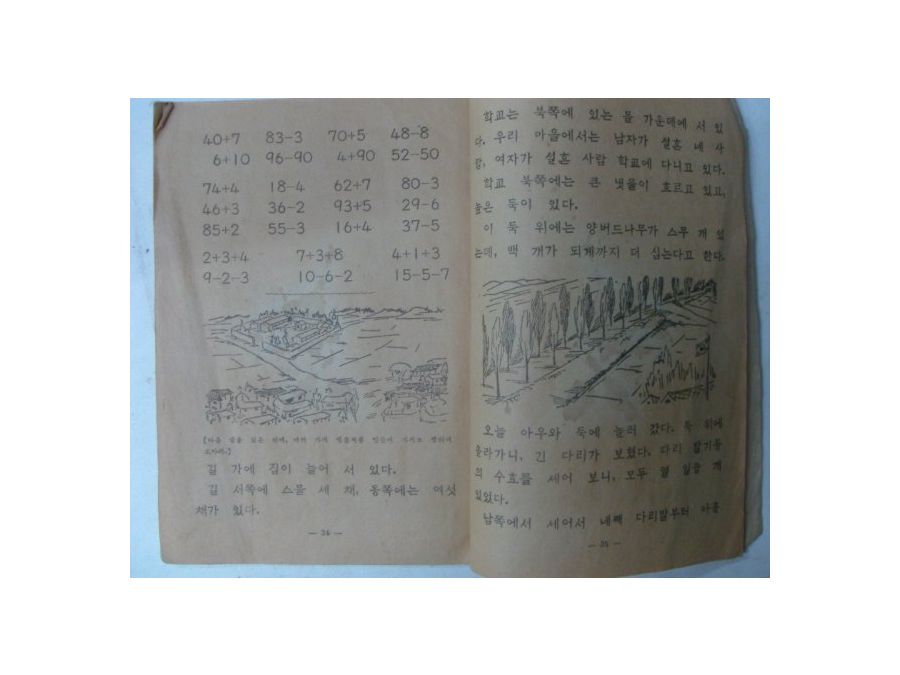 40+7 83-3 70+5 48-8
6+10 96-90 4+90 52-50
74+4 18-4 62+7 80-3
46+3 36-2 93+5 29-6
85+2 55-3 16+4 37-5
2+3+4 7+3+8 4+1+3
9-2-3 10-6-2 15-5-7
길 가에 집이 늘어 서 있다.
길 서쪽에 스물 세 채, 동쪽에는 여섯
채가 있다.
— 34 —
학교는 북쪽에 있는 들 가운데에 서 있
다. 우리 마을에서는 남자가 설흔 네 사
람, 여자가 설흔 사람 학교에 다니고 있다.
학교 북쪽에는 큰 냇물이 흐르고 있고,
높은 둑이 있다.
이 둑 위에는 양버드나무가 스무 개 있
는데, 백 개가 되게까지 더 심는다고 한다.
오늘 아우와 둑에 놀러 갔다. 둑 위에
올라가니, 긴 다리가 보였다. 다리 말기둥
의 수효를 세어 보니, 모두 열 일곱 개
있었다.
남쪽에서 세어서 네째 다리발부터
— 35 —